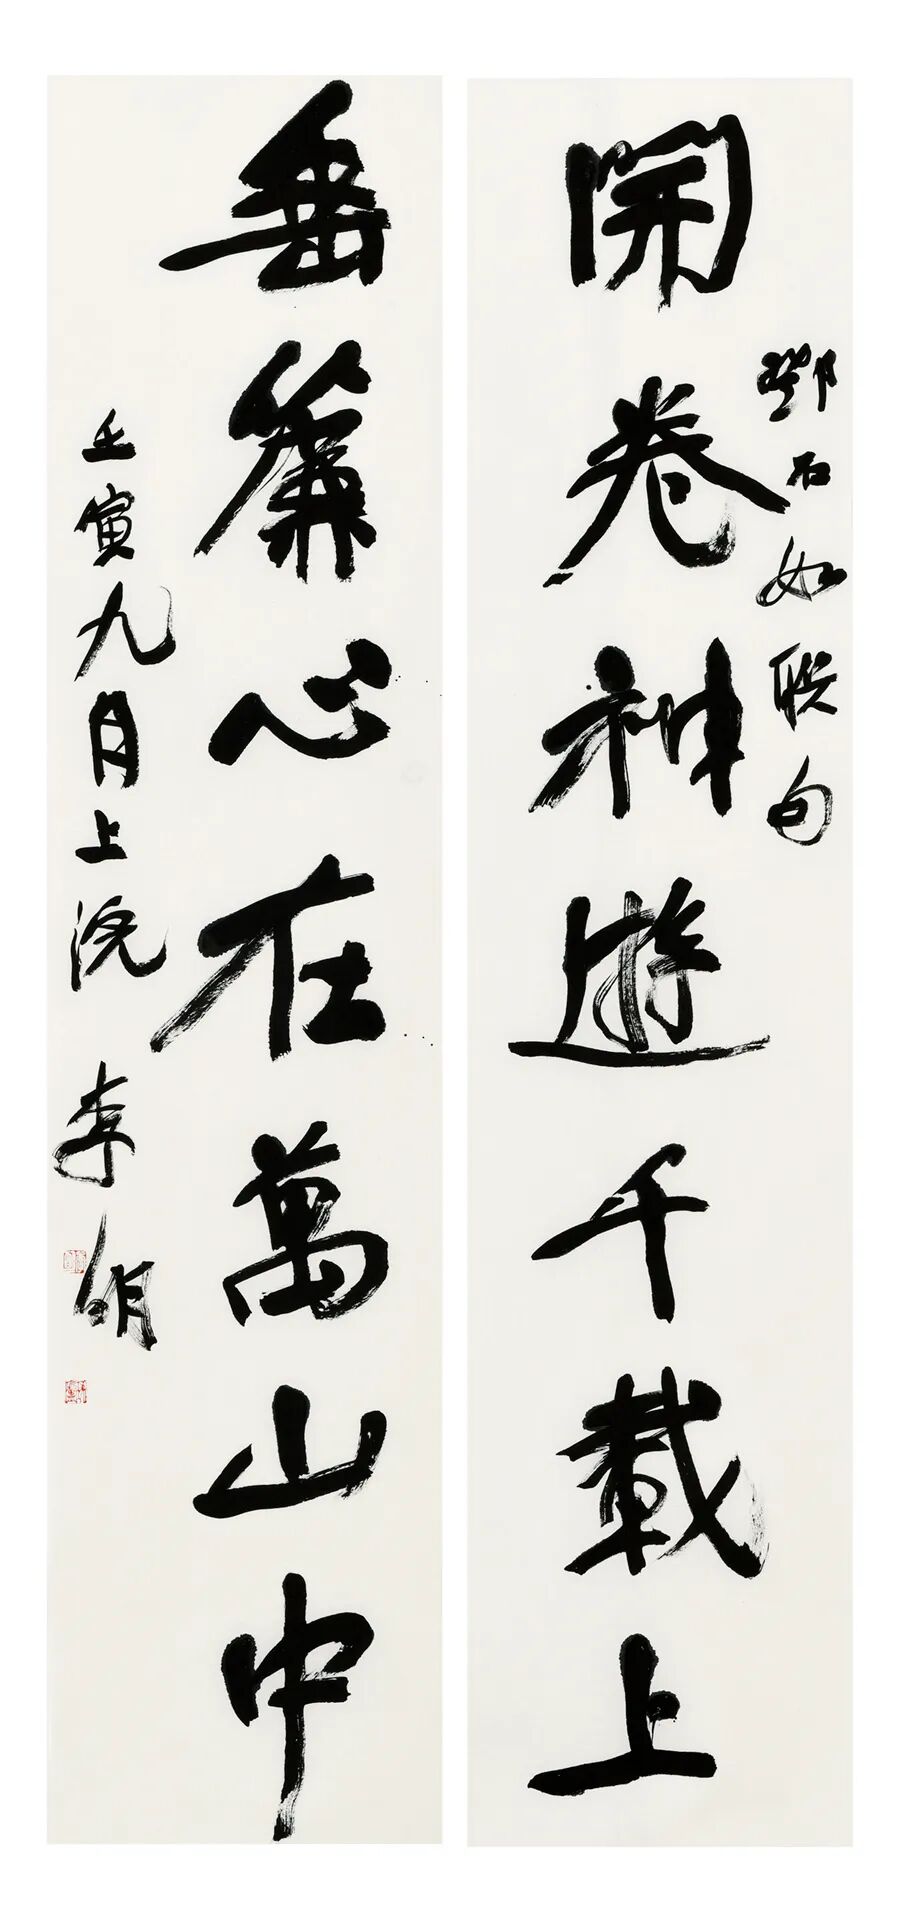 開卷神遊千載上
鄧石如聯句
垂簾心在萬山中
壬寅九月上浣 李明